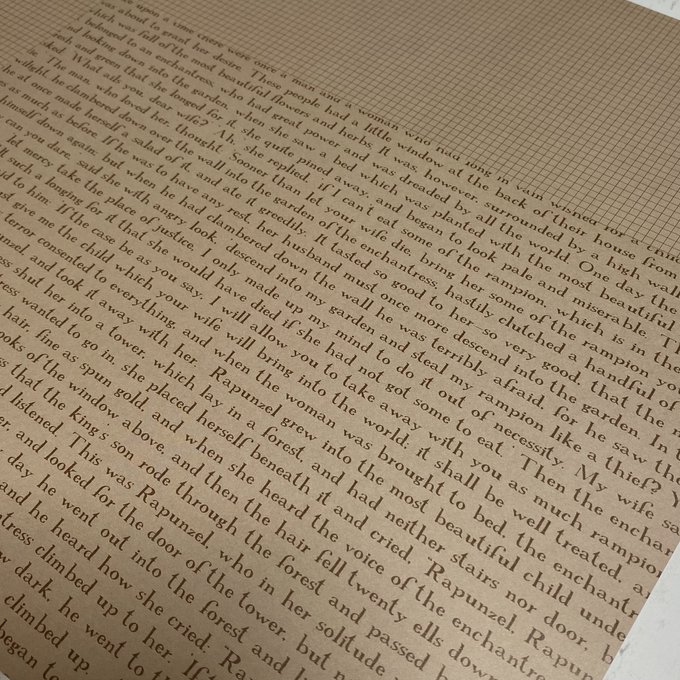 upon a time there were once a man and a woman who had long in vain wished for a child
was about to grant her desire. These people had a little window at the back of their house from
which was full of the most beautiful flowers and herbs. It was, however, surrounded by a high wall
belonged to an enchantress, who had great power and was dreaded by all the world. One day the
and looking down into the garden, when she saw a bed which was planted with the most beautiful
fresh and green that she longed for it, she quite pined away, and began to look pale and miserable. Th
asked. What ails you, dear wife? Ah, she replied, if I can't eat some of the rampion, which is in the
die. The man, who loved her, thought. Sooner than let your wife die, bring her some of the rampion yo
twilight, he clambered down over the wall into the garden of the enchantress, hastily clutched a handful of
She at once made herself a salad of it, and ate it greedily. It tasted so good to her-so very good, that the n
es as much as before. If he was to have any rest, her husband must once more descend into the garden. In t
himself down again, but when he had clambered down the wall he was terribly afraid, for he saw the
can you dare, said she with angry look, descend into my garden and steal my rampion like a thief? Y
let mercy take the place of justice, I only made up my mind to do it out of necessity. My wife sa
felt such a longing for it that she would have died if she had not got some to eat. Then the enchan
said to him. If the case be as you say, I will allow you to take away with you as much rampion
must give me the child which your wife will bring into the world, it shall be well treated, a
terror consented to everything, and when the woman was brought to bed, the enchantr
Rapunzel, and took it away with her. Rapunzel grew into the most beautiful child under
ess shut her into a tower, which lay in a forest, and had neither stairs nor door, b
ress wanted to go in, she placed herself beneath it and cried, Rapunzel, Rapun
hair, fine as spun gold, and when she heard the voice of the enchantre
ooks of the window above, and then the hair fell twenty ells down
ss that the king's son rode through the forest and passed b
d listened. This was Rapunzel, who in her solitude
er, and looked for the door of the tower, but n
day, he went out into the forest and l
and he heard how she cried, 'Ra
tress climbed up to her. If t
w dark, he went to t
climbed up.
began to